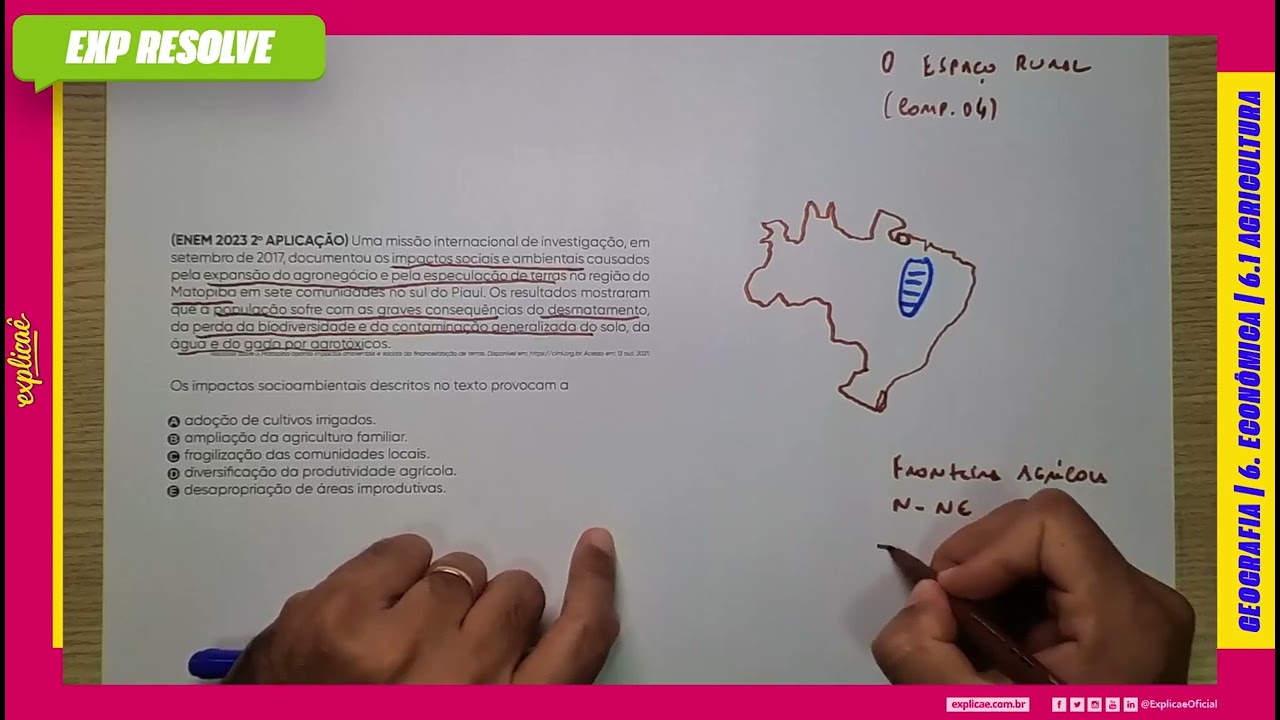 EXP RESOLVE
O ESPAÇO RURAL
(COMP. 04)
(ENEM 2023 2º APLICAÇÃO) Uma missão internacional de investigação, em
setembro de 2017, documentou os impactos sociais e ambientais causados
pela expansão do agronegócio e pela especulação de terras na região do
Matopiba em sete comunidades no sul do Piauí. Os resultados mostraram
que a população sofre com as graves consequências do desmatamento,
da perda da biodiversidade e da contaminação generalizada do solo, da
água e do gado por agrotóxicos.
impactos ambientais e sociais da financeirização de terras. Disponível em: https://cimi.org.br. Acesso em: 13 out. 2021.
Os impactos socioambientais descritos no texto provocam a
A adoção de cultivos irrigados.
B ampliação da agricultura familiar.
C fragilização das comunidades locais.
D diversificação da produtividade agrícola.
E desapropriação de áreas improdutivas.
FRONTEIRA AGRÍCOLA
N - NE
explicaê
GEOGRAFIA | 6. ECONÔMICA | 6.1 AGRICULTURA
explicae.com.br
@ExplicaeOficial